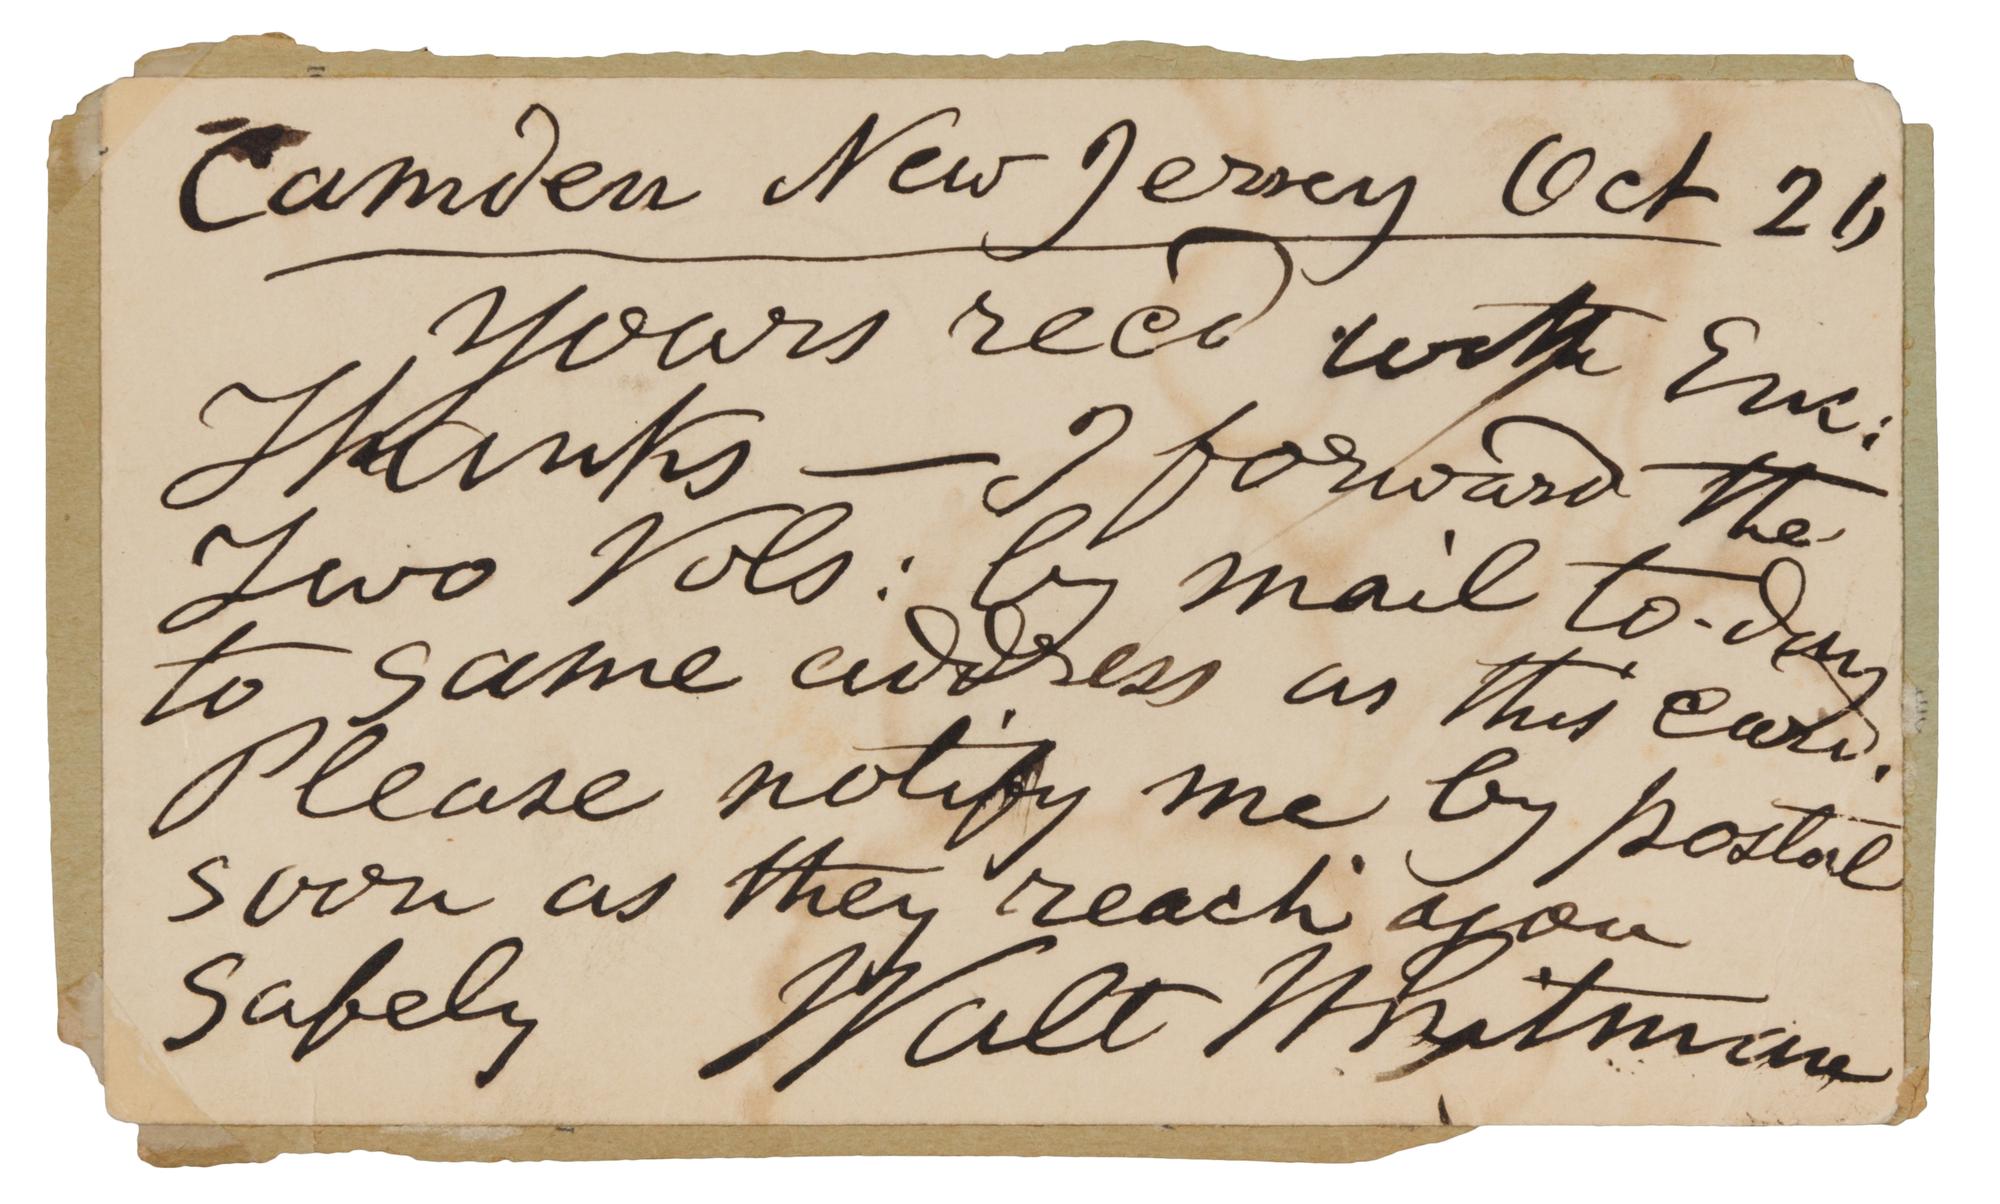 Camden New Jersey Oct 21,
Yours rec'd with Enc:
Thanks — I forward the
Two Vols: by mail to-day
to same address as this card.
Please notify me by postal
soon as they reach you
safely Walt Whitman